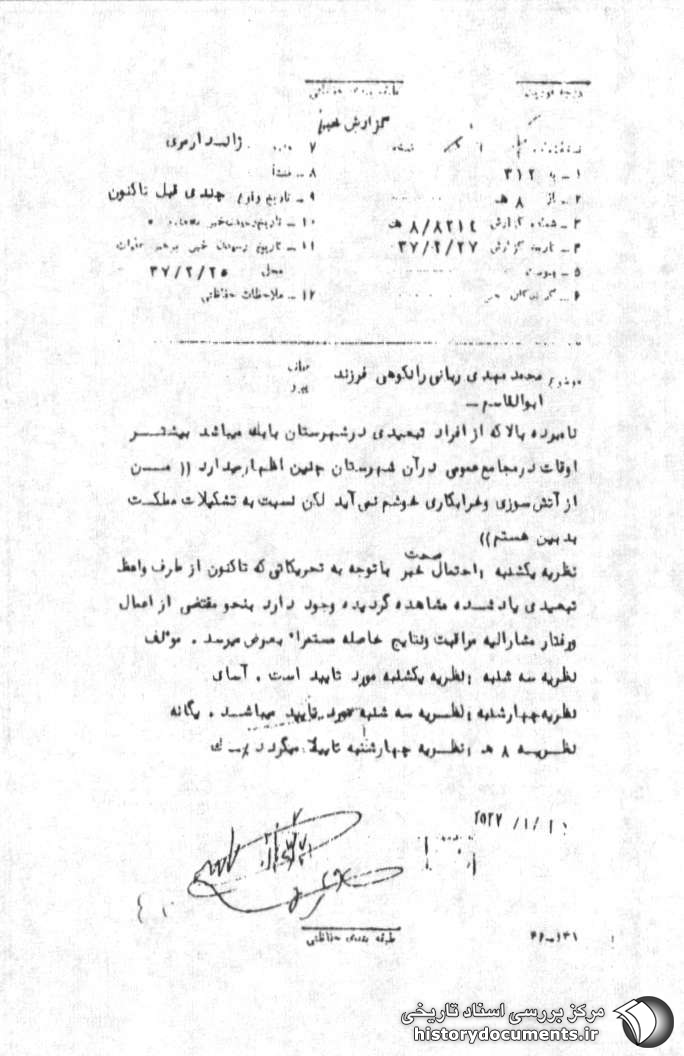 درجه فوریت
طبقه بندی حفاظتی
گزارش خبر
۱ـ به ۳۱۲
۲ـ از ۸ هـ
۳ـ شماره گزارش ۸/۸۲۱۴ هـ
۴ـ تاریخ گزارش ۳۷/۲/۲۷
۵ـ پیوست
۶ـ گیرندگان خبر
۷
۸ـ منشأ
۹ـ تاریخ وقوع چندی قبل تاکنون
۱۰ـ تاریخ رسیدن خبر
۱۱ـ تاریخ رسیدن خبر برهبر عملیات
محل ۳۷/۲/۲۵
۱۲ـ ملاحظات حفاظتی
موضوع محمد مهدی ربانی رانکوهی فرزند
ابوالقاسم ـ
نامبرده بالا که از افراد تبعیدی در شهرستان بافت میباشد بیشتر
اوقات در مجامع عمومی در آن شهرستان چنین اظهار میدارد (( من
از آتش سوزی وخرابکاری خوشم نمی آید لکن نسبت به تشکیلات مملکت
بدبین هستم))
نظریه یکشنبه : احتمال صحت خبر باتوجه به تحریکاتی که تاکنون از طرف واعظ
تبعیدی یاد شده مشاهده گردیده وجود دارد بنحو مقتضی از اعمال
ورفتار مشارالیه مراقبت ونتایج حاصله مستمرا" بعرض میرسد . مؤلف
نظریه سه شنبه : نظریه یکشنبه مورد تایید است . آسای
نظریه چهارشنبه : نظریه سه شنبه مورد تایید میباشد . یگانه
نظریه ۸ هـ : نظریه چهارشنبه تایید میگردد
۲۵۳۷/۱/
طبقه بندی حفاظتی
مرکز بررسی اسناد تاریخی
historydocuments.ir